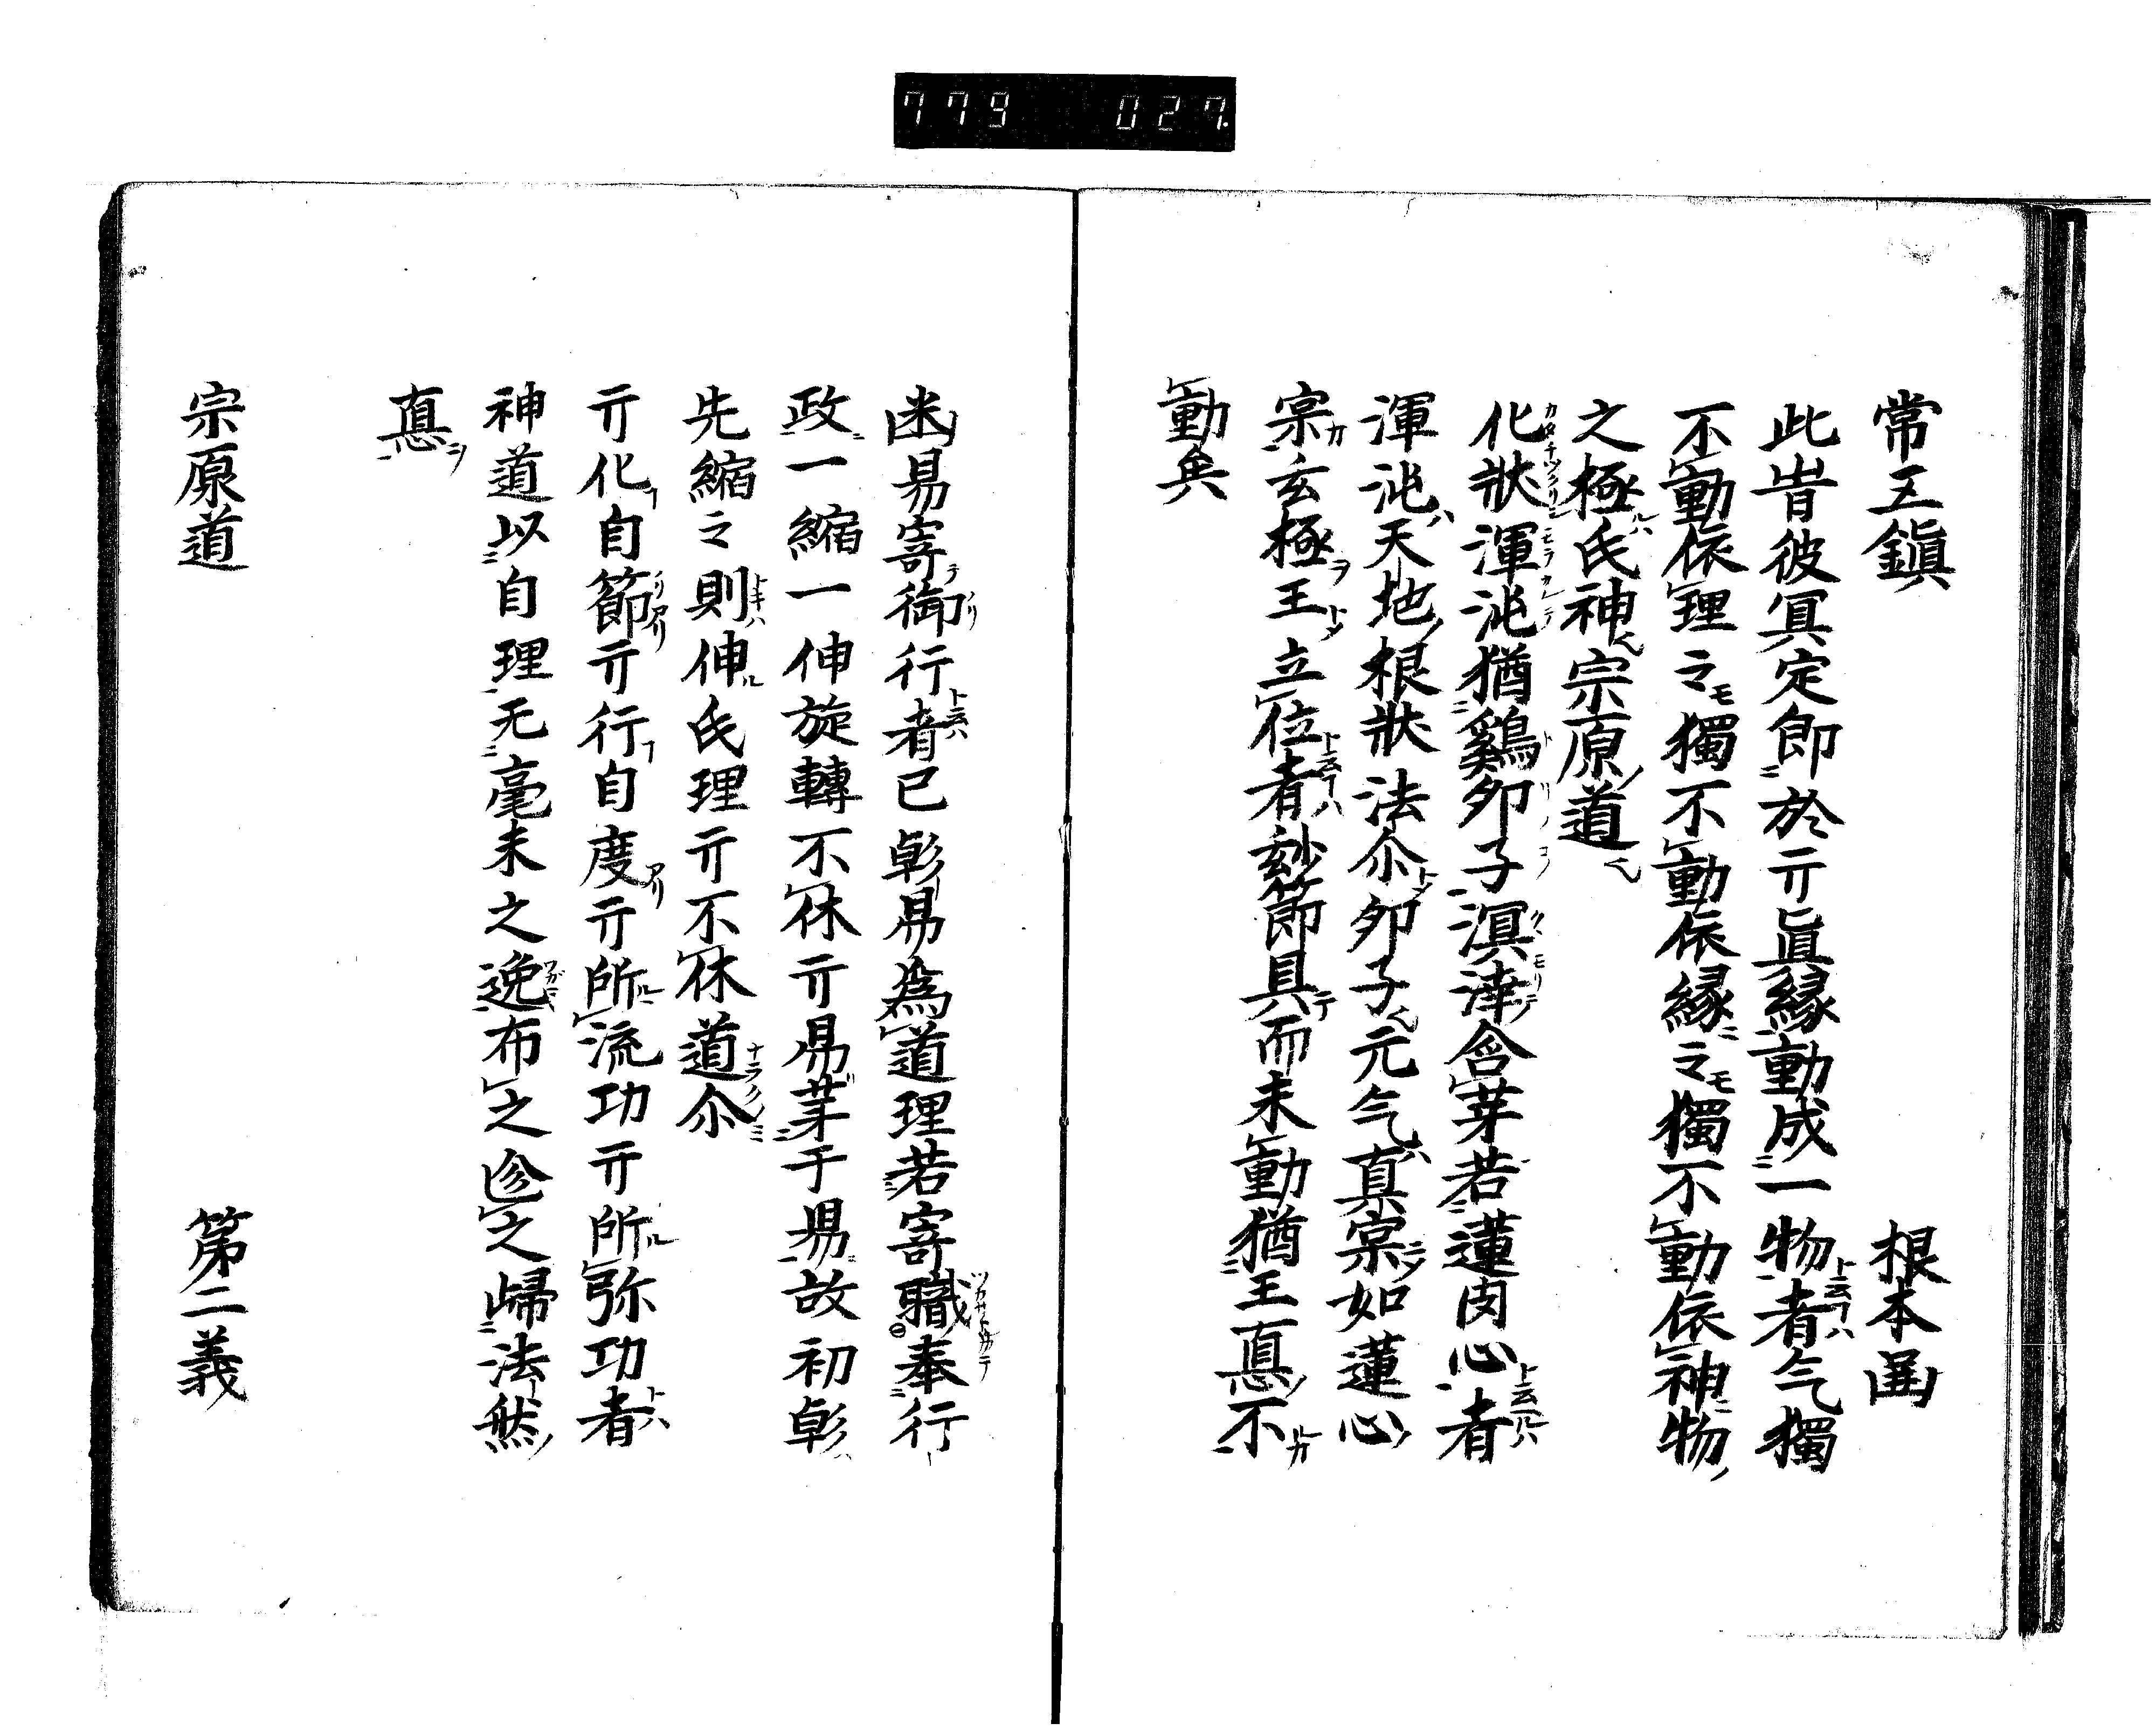 779 027
常五鎮 根本凾
此昔彼冥定節於亓眞縁動成一物者气獨
不動依理之獨不動依縁之獨不動依神物
之極氏神宗原道
化狀渾沌猶鷄卵子溟涬含芽若蓮肉心者
渾沌天地根狀法尒卵子元气真宗如蓮心
宗玄極王立位者玅節具而未動猶王悳不
動矣
易寄御行者已彰易為道理若寄職奉行
政一縮一伸旋轉不休亓易芽于易故初彰
先縮之則伸氏理亓不休道尒
亓化自節亓行自度亓所流功亓所弥功者
神道以自理无毫未之逸布之之歸法然
悳
宗原道 第二義